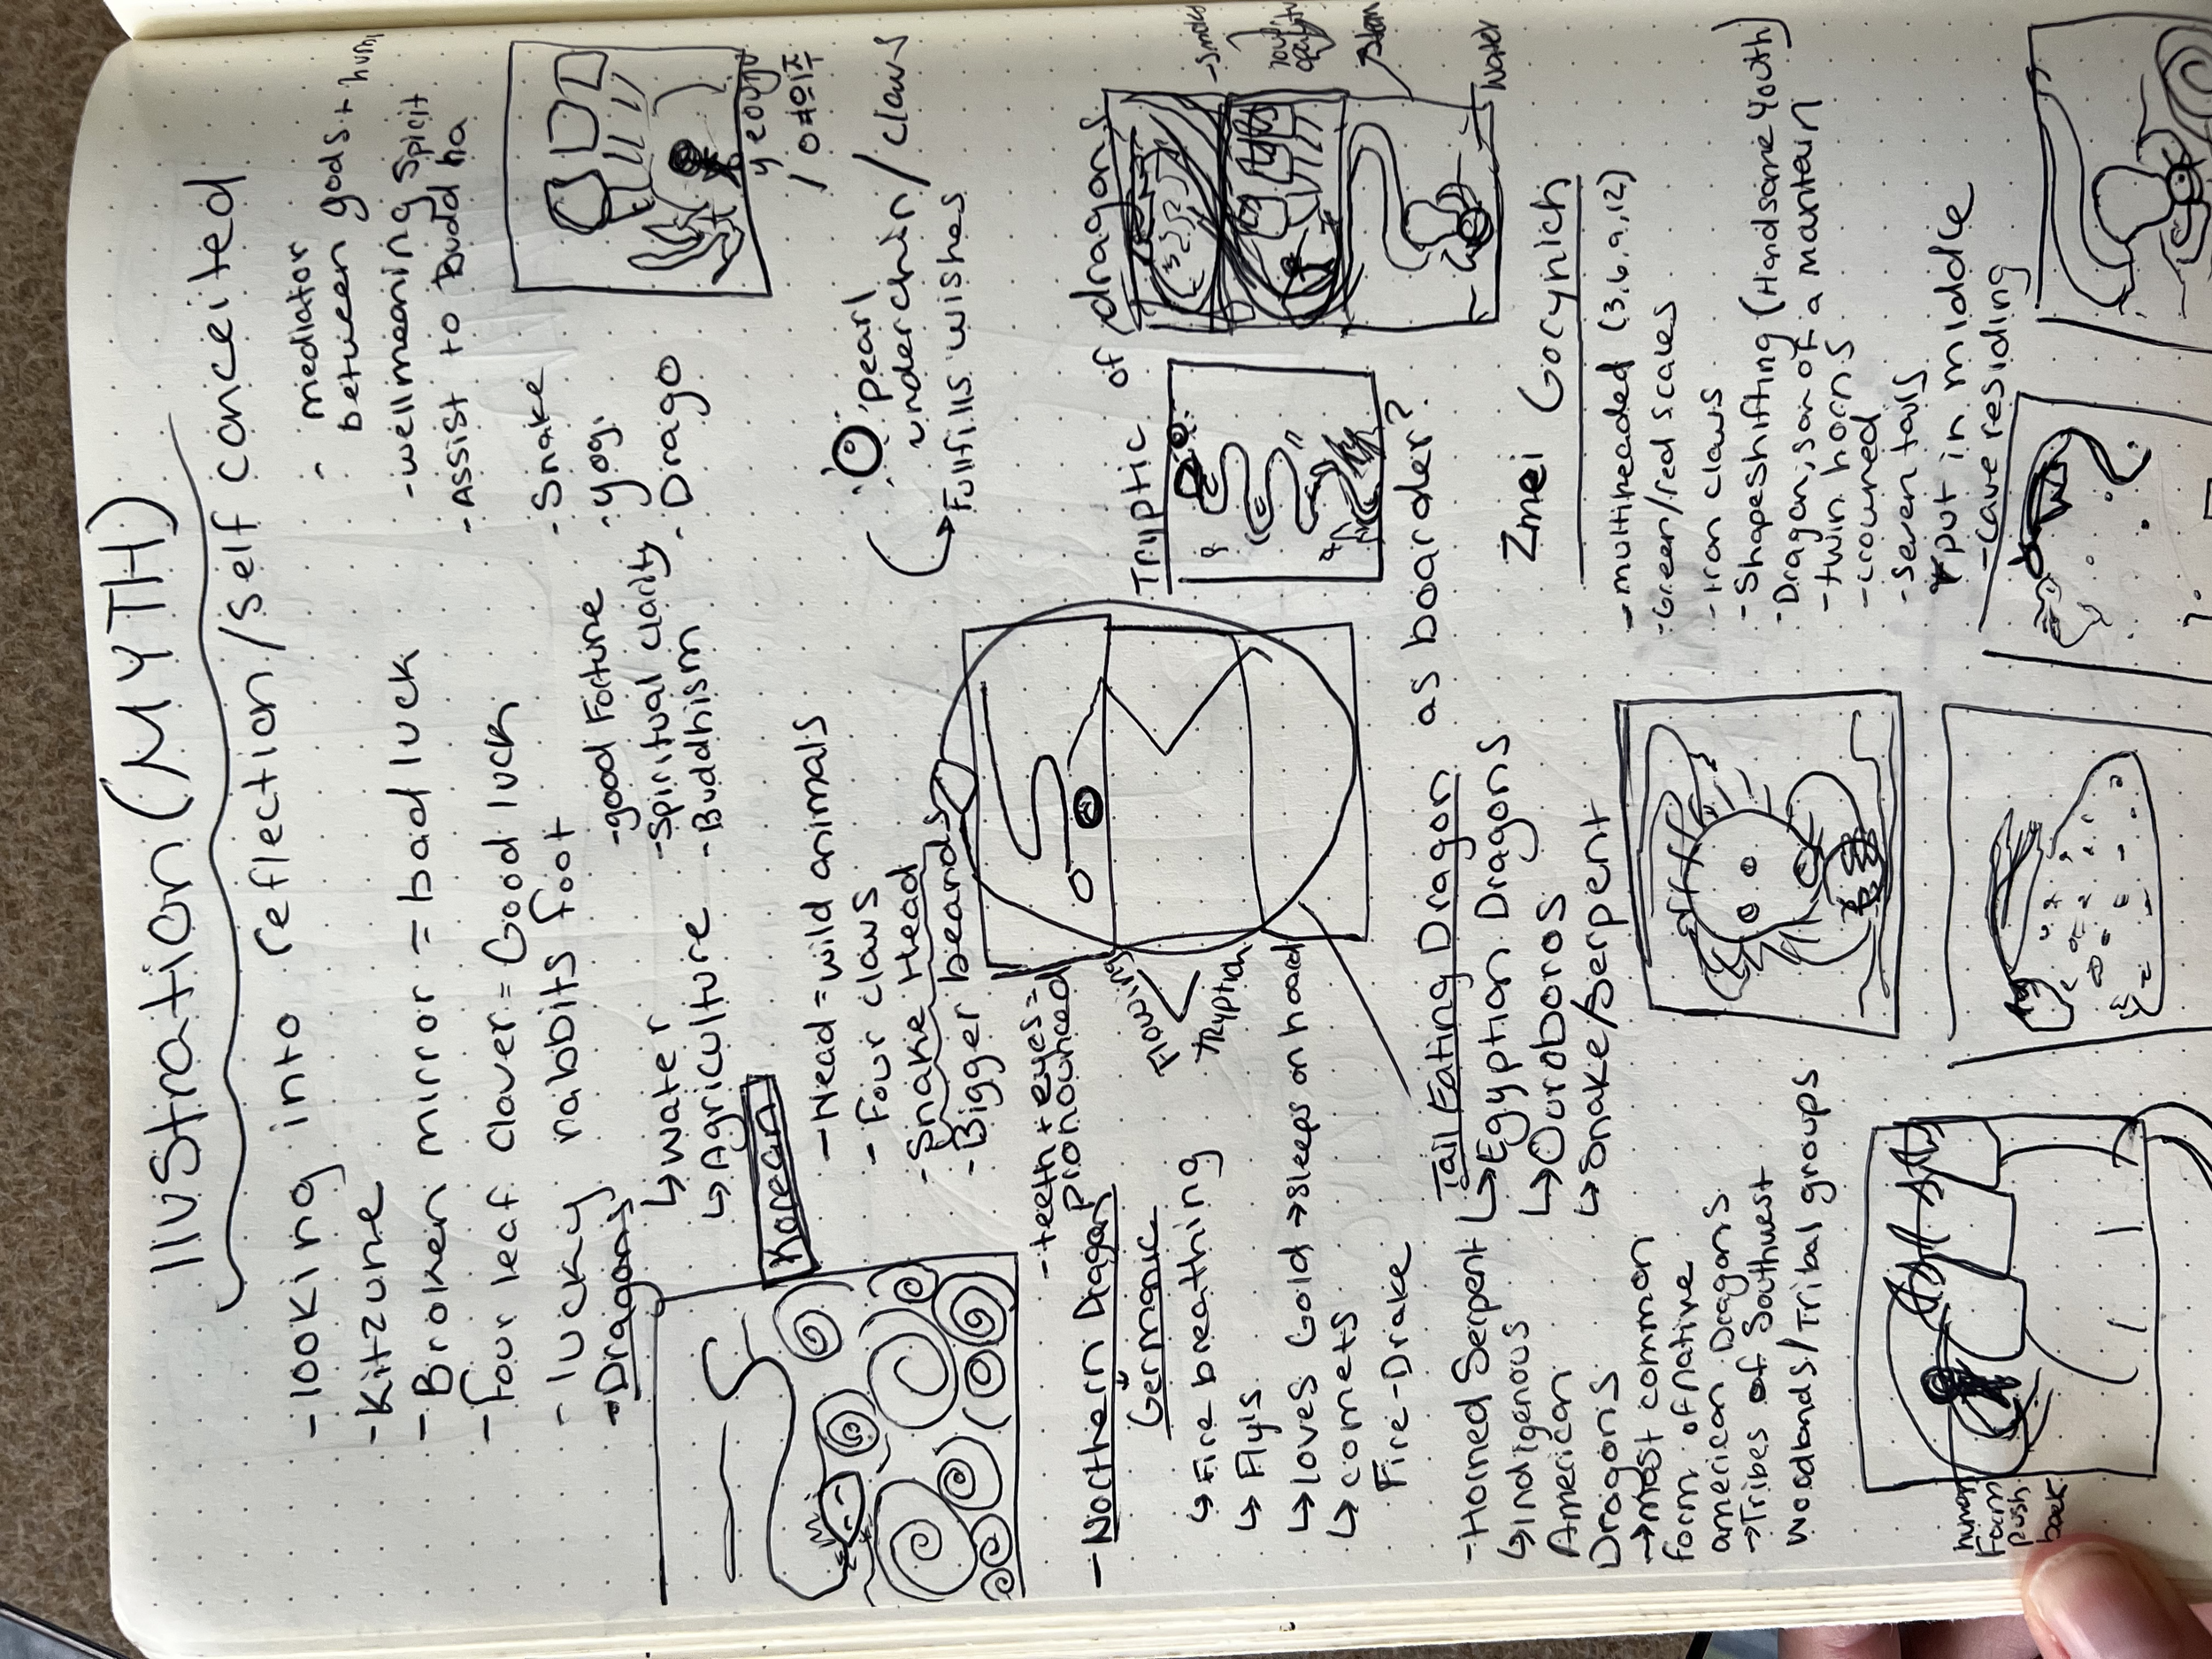 Illustration (MYTH)
-looking into reflection/self conceited
-Kitzune
- Broken mirror = bad luck
- four leaf Claver = Good luck
- lucky rabbits foot
-Dragons
↳ water
↳ Agriculture
-good Fortune
-Spiritual clarity
-Buddhism
- mediator
between gods +
-wellmeaning Spicit
-Assist to Buddha
-Snake
-yog.
-Drago
yeouiju
/ 여의주
Korean
-Head = wild animals
- Four claws
-Snake Head
-Bigger beards
-teeth + eyes =
pronounced
pearl
under chin / claws
↳ Fullfills wishes
- Northern Dragon
Germanic
↳ Fire breathing
↳ Flys
↳ loves Gold → sleeps on hoard
↳ comets
Fire-Drake
Flowing
Tryptich
Tryptic of dragons
-smoke
water
Tail Eating Dragon as boarder?
↳ Egyption Dragons
↳ Ouroboros
↳ Snake/Serpent
-Horned Serpent
↳ indigenous
American
Dragons
→ most common
form of native
american Dragons
→Tribes of Southwest
woodlands/Tribal groups
Zmei Gorynich
- multiheaded (3,6,9,12)
-Green/red scales
-iron claws
-Shapeshifting (Handsome Youth)
-Dragan, son of a mantain
-twin horns
-crowned
-seven tails
put in middle
-cave residing
human
Form
push
back